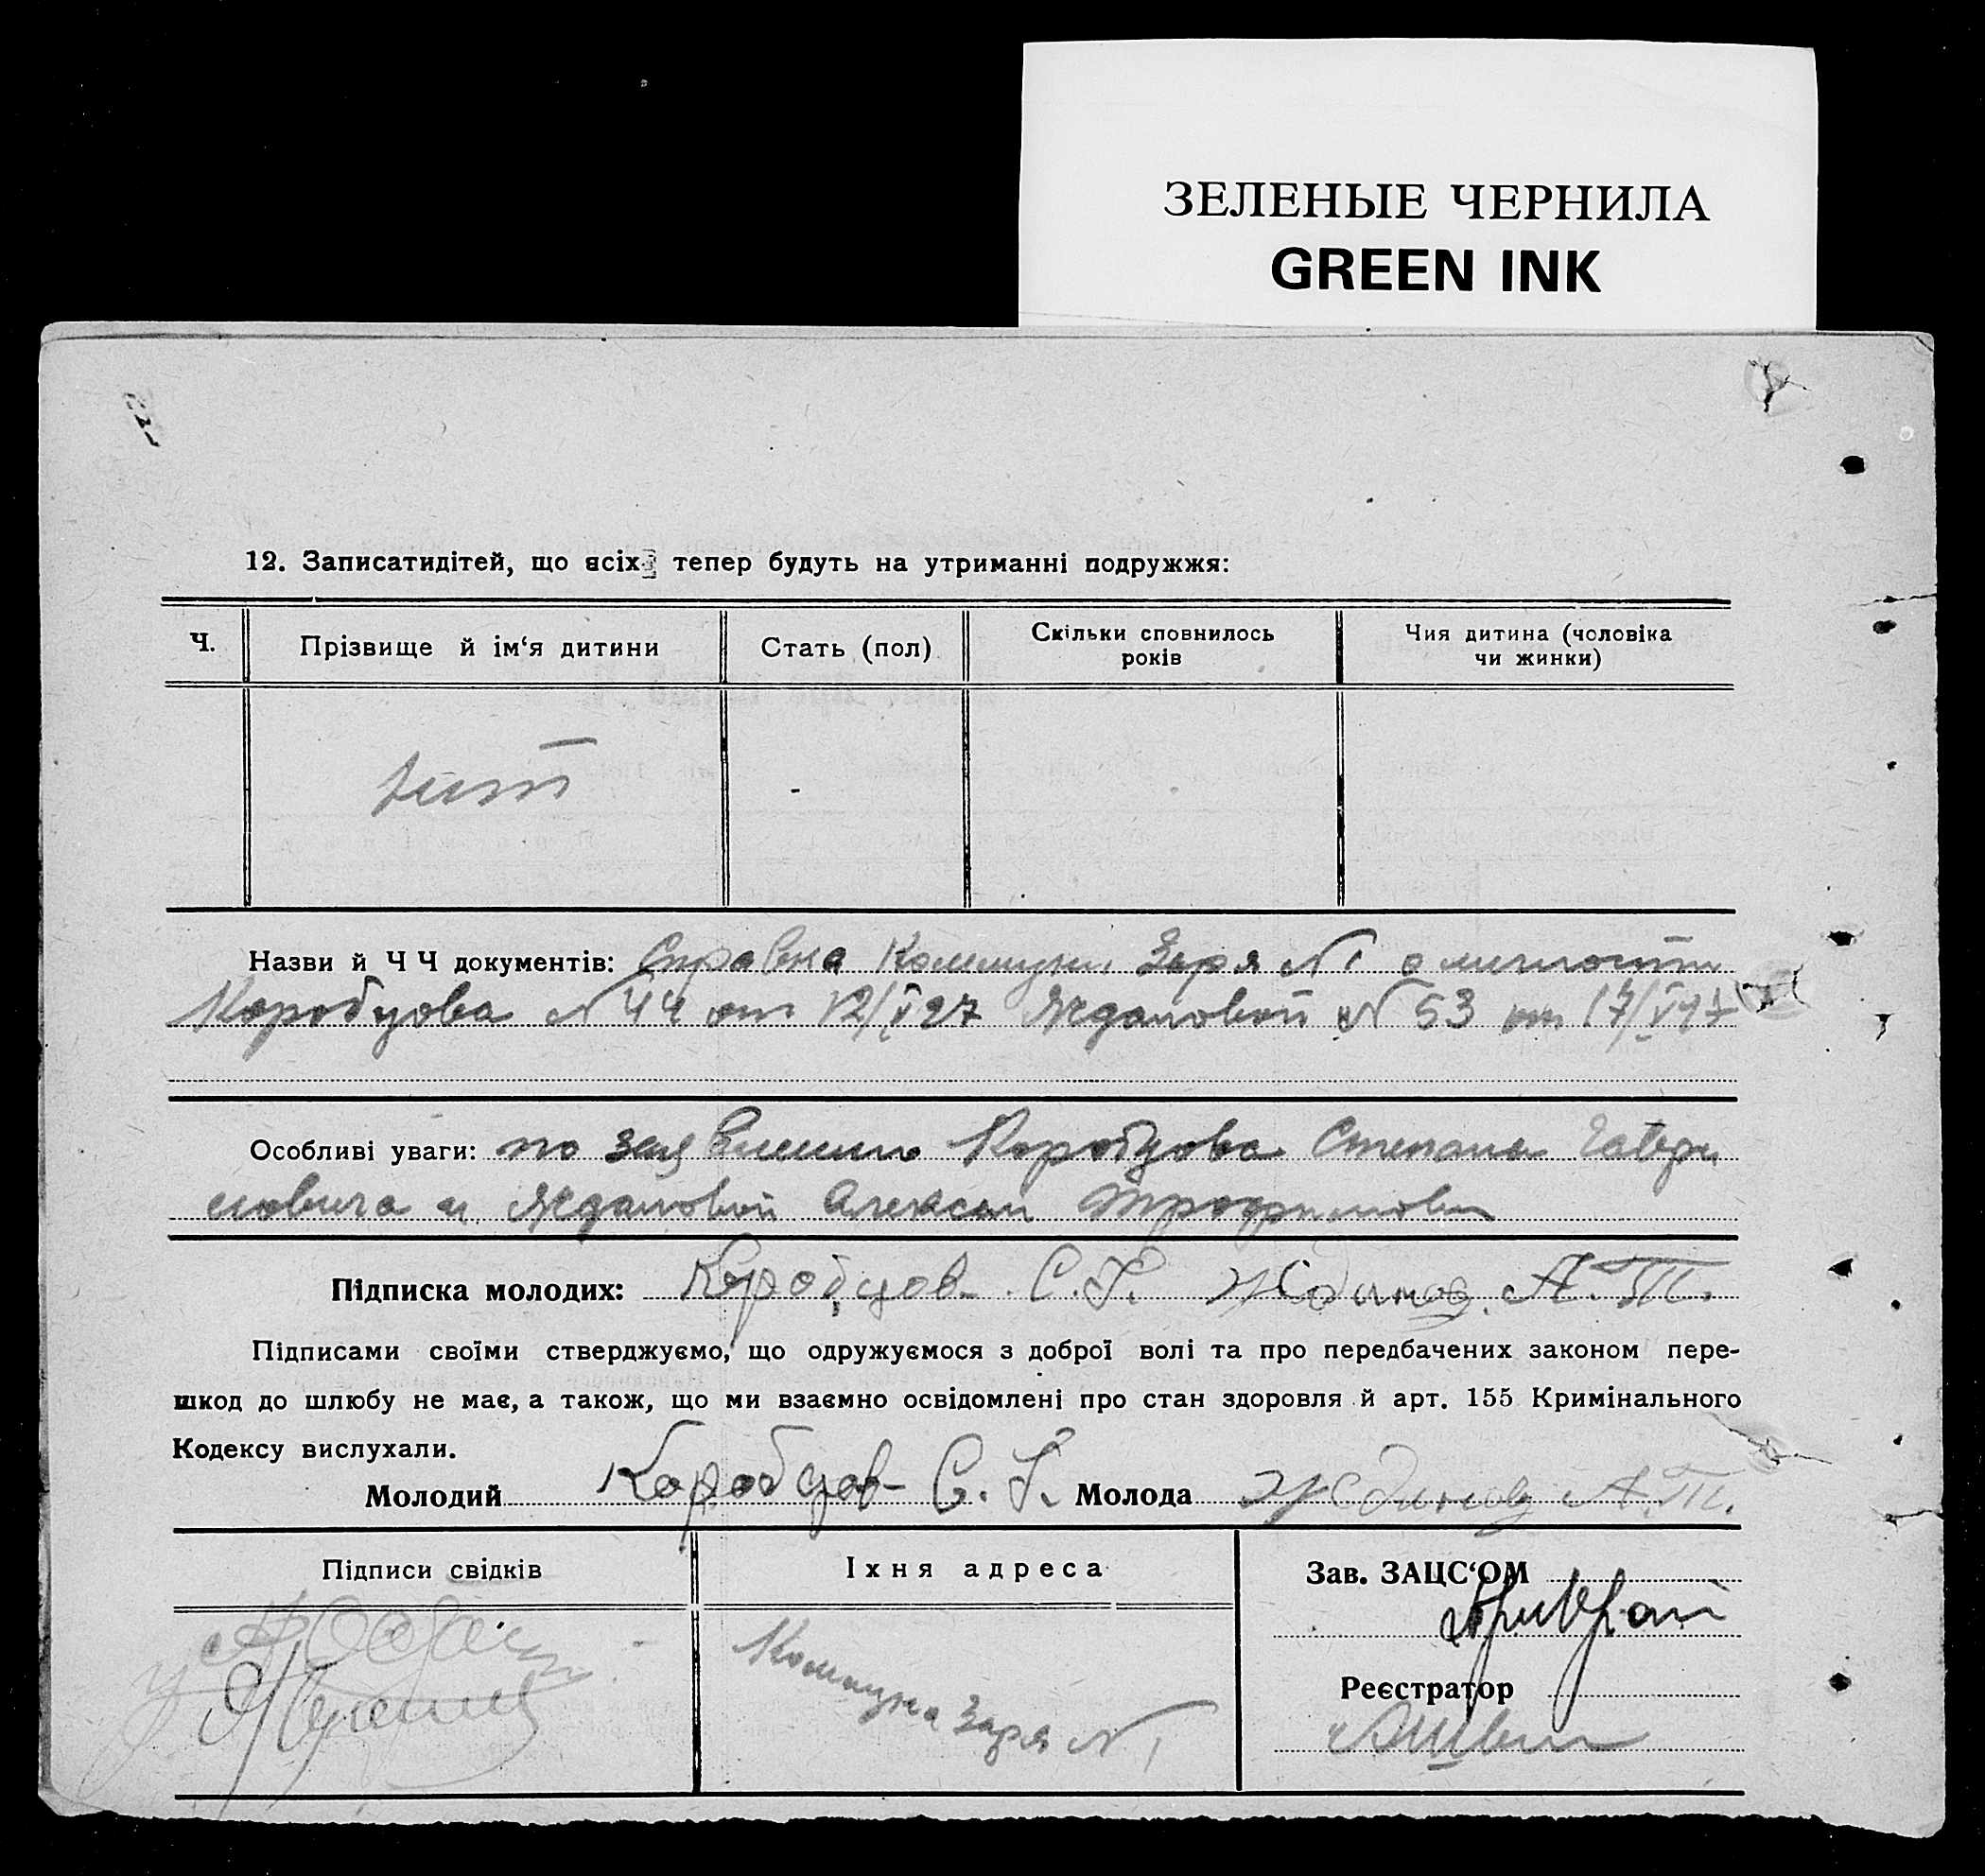 ЗЕЛЕНЫЕ ЧЕРНИЛА
GREEN INK
12. Записатидітей, що всіх тепер будуть на утриманні подружжя:
Ч.
Прізвище й ім‘я дитини
Стать (пол)
Скільки сповнилось
років
Чия дитина (чоловіка
чи жинки)
Назви й Ч Ч документів: Справка Коммуни Заря № 1 о личности
Коробцова № 44 от 12/V 27 Ждановой № 53 от 17/V 27
Особливі уваги: по заявлению Коробцова Степана Гаври
ловича и Ждановой Александ Трофимовн
Підписка молодих: Коробцов С. Г. Жданов. А. Т.
Підписами своїми стверджуємо, що одружуємося з доброї волі та про передбачених законом пере-
шкод до шлюбу не має, а також, що ми взаємно освідомлені про стан здоровля й арт. 155 Кримінального
Кодексу вислухали.
Молодий Коробцов С. Г. Молода Жданов А. Т.
Підписи свідків
Їхня адреса
Коммуна Заря № 1
Зав. ЗАЦС‘ОМ
Реєстратор